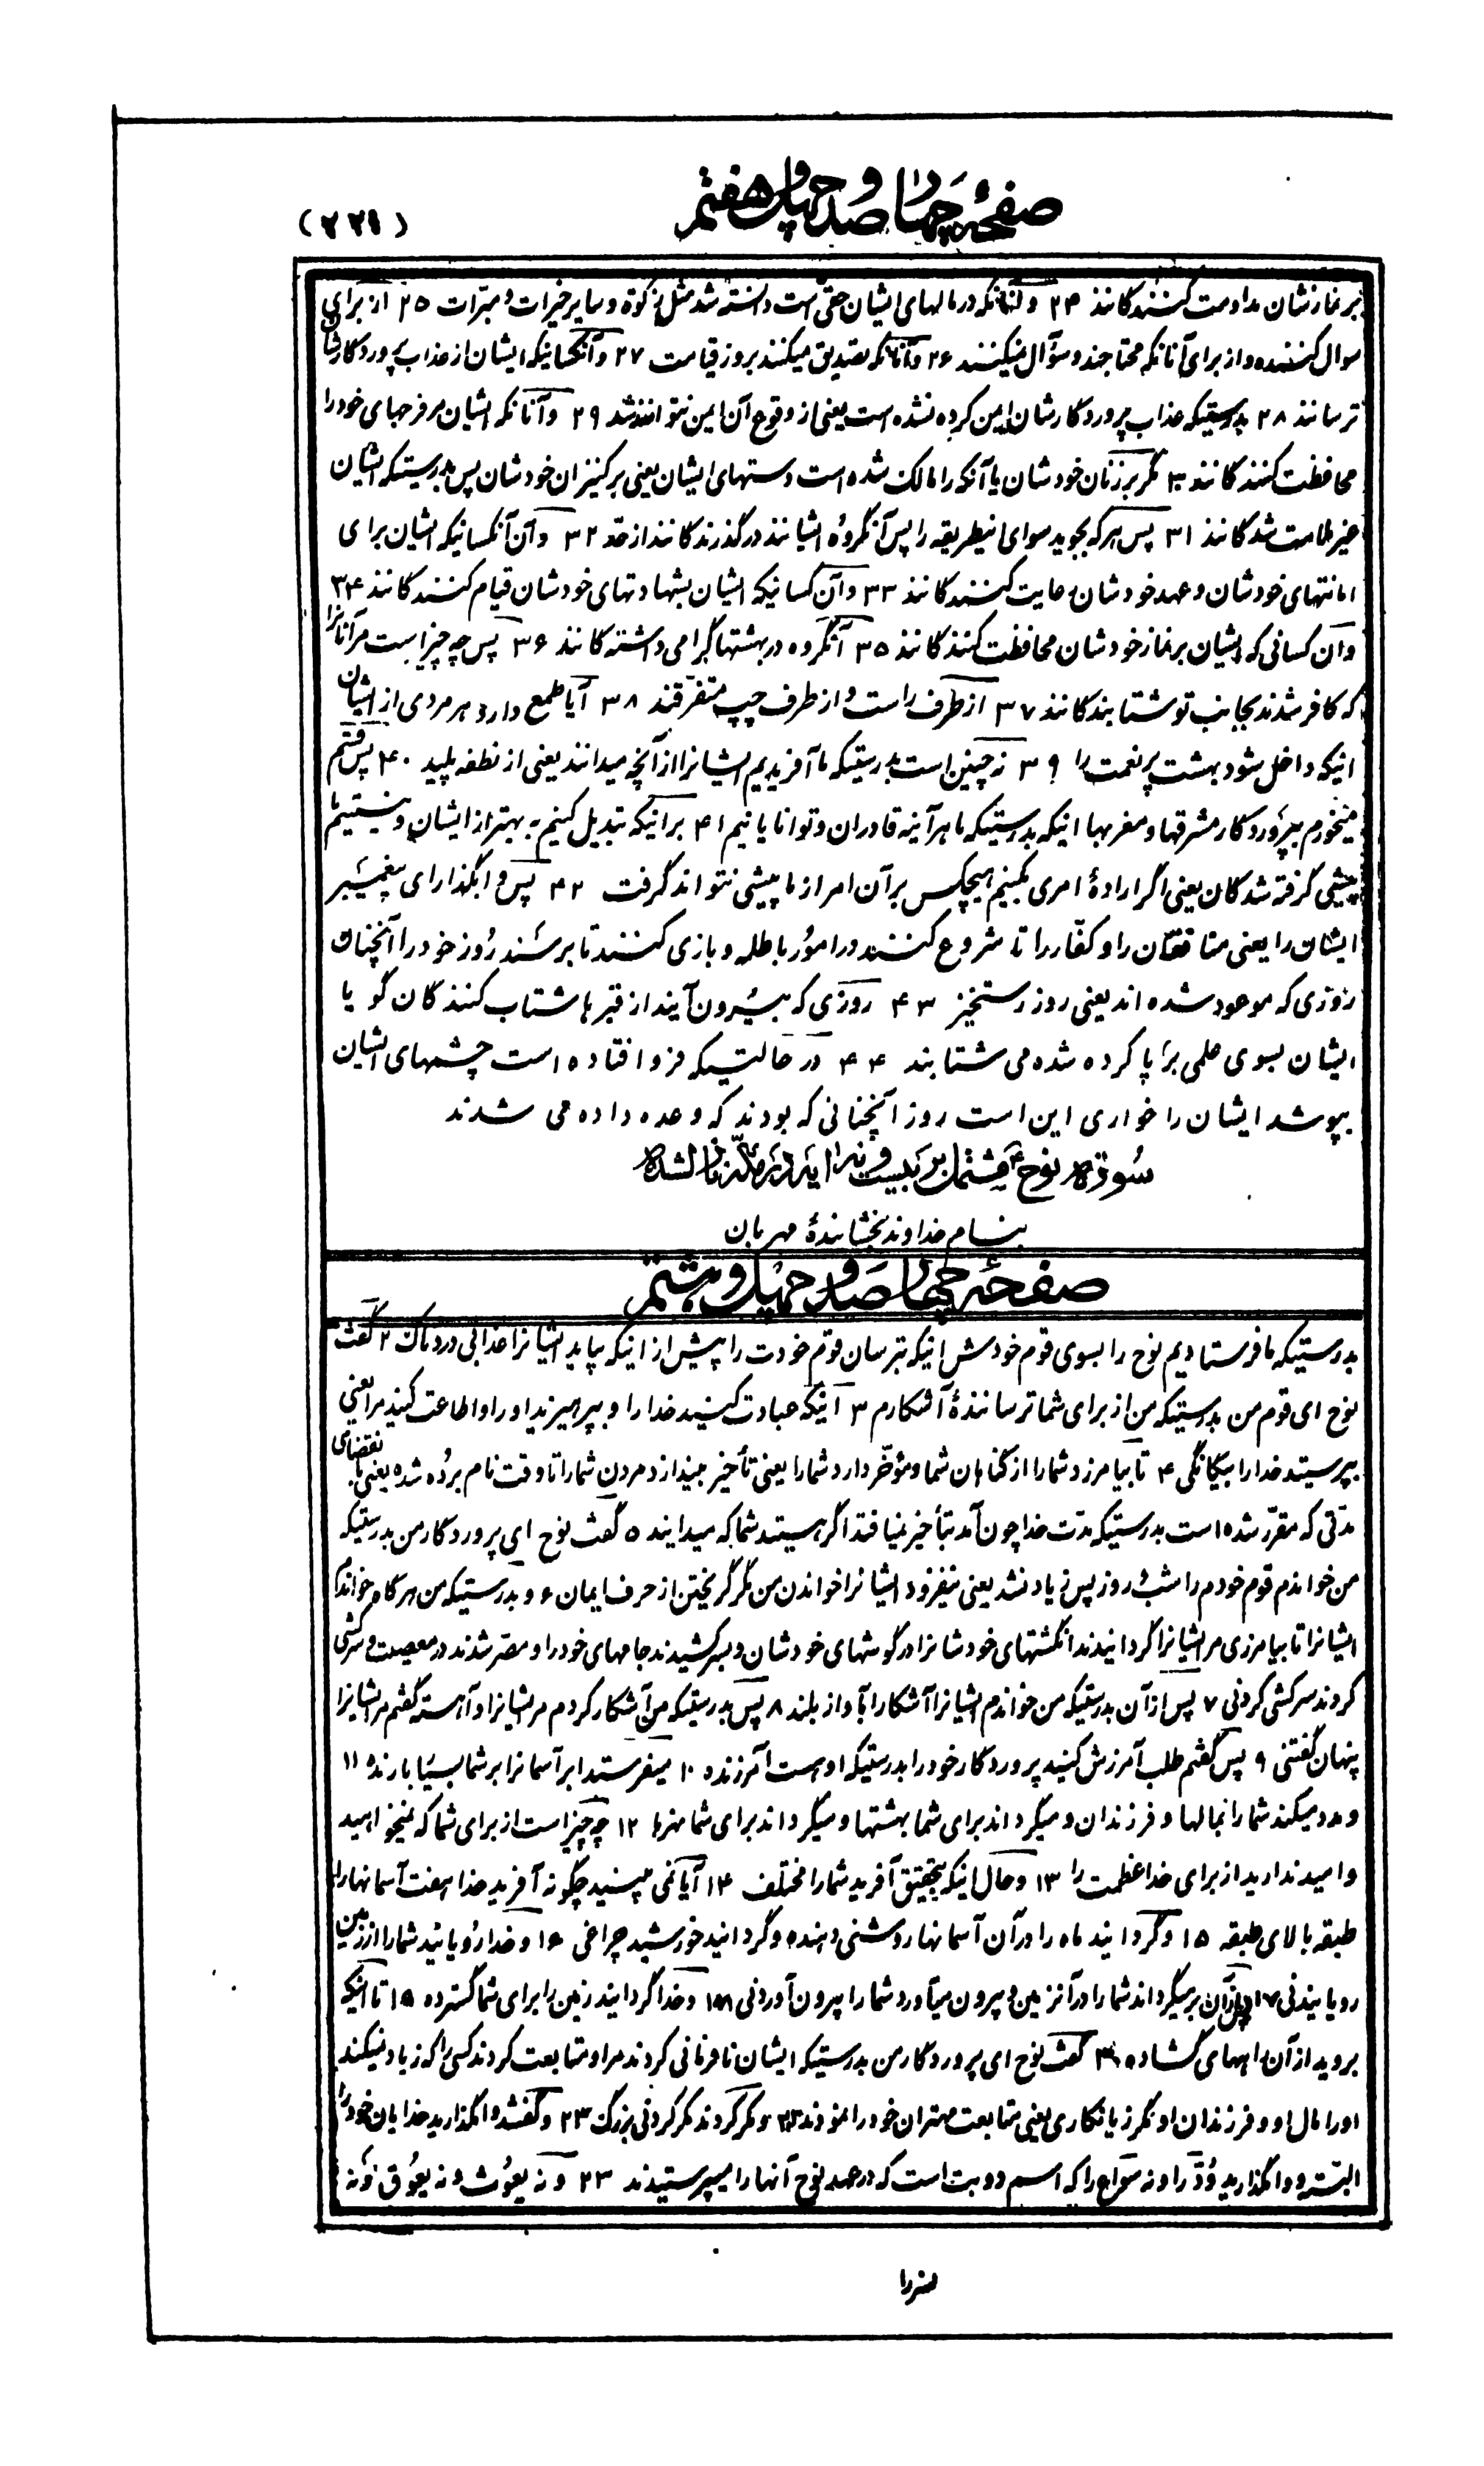 صفحهٔ چهارصد و چهل و هفتم
(۲۲۹)
بر نمازشان مداومت کنندگانند ۲۴ و آنانکه در مالهای ایشان حقّی است دانسته شده مثل زکوة و سایر خیرات و مبرّات ۲۵ از برای
سوال کننده و از برای آنانکه محتاجند و سؤال نمیکنند ۲۶ و آنانکه تصدیق میکنند بروز قیامت ۲۷ و آنکسانیکه ایشان از عذاب پروردگارشان
ترسانند ۲۸ بدرستیکه عذاب پروردگارشان ایمن کرده نشده است یعنی از وقوع آن ایمن نتوانند شد ۲۹ و آنانکه ایشان مر فرجهای خود را
محافظت کنندگانند ۳۰ مگر بر زنان خودشان یا آنکه را مالک شده است دستهای ایشان یعنی بر کنیزان خودشان پس بدرستیکه ایشان
غیر ملامت شدگانند ۳۱ پس هر که بجوید سوای اینطریقه را پس آنگروه ایشانند در گذرندگانند از حدّ ۳۲ و آن آنکسانیکه ایشان برای
امانتهای خودشان و عهد خودشان رعایت کنندگانند ۳۳ و آن کسانیکه ایشان بشهادتهای خودشان قیام کنندگانند ۳۴
و آن کسانی که ایشان بر نماز خودشان محافظت کنندگانند ۳۵ آنگروه در بهشتها گرامی داشته گانند ۳۶ پس چه چیز است مر آنانرا
که کافر شدند بجانب تو شتابندگانند ۳۷ از طرف راست و از طرف چپ متفرّقند ۳۸ آیا طمع دارد هر مردی از ایشان
اینکه داخل شود بهشت پر نعمت را ۳۹ نه چنین است بدرستیکه ما آفریدیم ایشانرا از آنچه میدانند یعنی از نطفه پلید ۴۰ پس قسم
میخورم بپروردگار مشرقها و مغربها اینکه بدرستیکه ما هر آینه قادران و توانایانیم ۴۱ بر اینکه تبدیل کنیم به بهتر از ایشان و نیستیم ما
پیشی گرفته شدگان یعنی اگر ارادهٔ امری بکنیم هیچکس بر آن امر از ما پیشی نتواند گرفت ۴۲ پس واگذار ای پیغمبر
ایشان را یعنی منافقان را و کفّار را تا شروع کنند در امور باطله و بازی کنند تا برسند روز خود را آنچنان
روزی که موعود شده اند یعنی روز رستخیز ۴۳ روزی که بیرون آیند از قبرها شتاب کنندگان گویا
ایشان بسوی علمی برپا کرده شده می شتابند ۴۴ در حالتیکه فرو افتاده است چشمهای ایشان
بپوشد ایشان را خواری این است روز آنچنانی که بودند که وعده داده می شدند
سوره نوح مشتمل بر بیست و نه آیه در مکّه نازل شده
بنام خداوند بخشایندهٔ مهربان
صفحهٔ چهارصد و چهل و هشتم
بدرستیکه ما فرستادیم نوح را بسوی قوم خودش اینکه بترسان قوم خودت را پیش از اینکه بیاید ایشانرا عذابی دردناک ۲ گفت
نوح ای قوم من بدرستیکه من از برای شما ترسانندهٔ آشکارم ۳ اینکه عبادت کنید خدا را و بپرهیزید او را و اطاعت کنید مرا یعنی
بپرستید خدا را بیگانگی ۴ تا بیامرزد شما را از گناهان شما و مؤخّر دارد شما را یعنی تأخیر میندازد مردن شما را تا وقت نام برده شده یعنی تا انقضای
مدّتی که مقرّر شده است بدرستیکه مدّت خدا چون آمد بتأخیر نیافتد اگر هستید شما که میدانید ۵ گفت نوح ای پروردگار من بدرستیکه
من خواندم قوم خودم را شب و روز پس زیاد نشد یعنی نیفزود ایشانرا خواندن من مگر گریختن از حرف ایمان ۶ و بدرستیکه من هر گاه خواندم
ایشانرا تا بیامرزی مر ایشانرا گردانیدند انگشتهای خودشانرا در گوشهای خودشان و بسر کشیدند جامهای خود را و مصرّ شدند در معصیت و سرکشی
کردند سرکشی کردنی ۷ پس از آن بدرستیکه من خواندم ایشانرا آشکارا بآواز بلند ۸ پس بدرستیکه من آشکار کردم مر ایشانرا و آهسته گفتم مر ایشانرا
پنهان گفتنی ۹ پس گفتم طلب آمرزش کنید پروردگار خود را بدرستیکه او است آمرزنده ۱۰ میفرستد ابر آسمانرا بر شما بسیار بارنده ۱۱
و مدد میکند شما را بمالها و فرزندان و میگرداند برای شما بهشتها و میگرداند برای شما نهرها ۱۲ چه چیز است از برای شما که نمیخواهید
و امید ندارید از برای خدا عظمت را ۱۳ و حال اینکه بتحقیق آفرید شما را مختلف ۱۴ آیا نمی بینید چگونه آفرید خدا هفت آسمانها را
طبقه بالای طبقه ۱۵ و گردانید ماه را در آن آسمانها روشنی دهنده و گردانید خورشید چراغی ۱۶ و خدا رویانید شما را از زمین
رویانیدنی ۱۷ پس از آن بر میگرداند شما را در آنزمین و بیرون میآورد شما را بیرون آوردنی ۱۸ و خدا گردانید زمین را برای شما گسترده ۱۹ تا اینکه
بروید از آن راههای گشاده ۲۰ گفت نوح ای پروردگار من بدرستیکه ایشان نافرمانی کردند مرا و متابعت کردند کسی را که زیاد نمیکند
او را مال او و فرزندان او مگر زیانکاری یعنی متابعت مهتران خود را نمودند ۲۱ و مکر کردند مکر کردنی بزرگ ۲۲ و گفتند وا مگذارید خدایان خود را
البتّه و وا مگذارید وُدّ را و نه سواع را که اسم دو بت است که در عهد نوح آنها را میپرستیدند ۲۳ و نه یغوث و نه یعوق و نه
نسر را